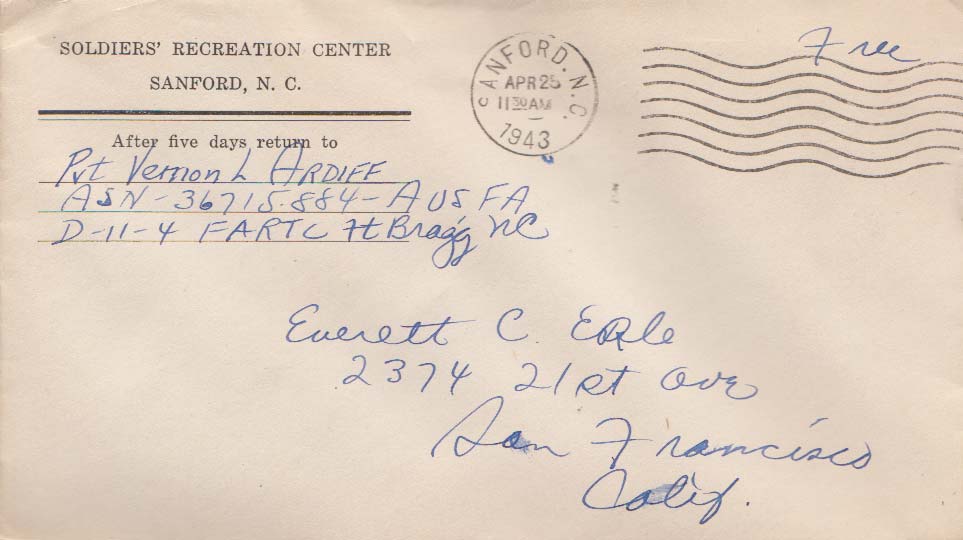 SOLDIERS' RECREATION CENTER
SANFORD, N. C.
After five days return to
Pvt Vernon L ARDIFF
ASN - 36715884 - AUS FA
D-11-4 FARTC Ft Bragg NC
SANFORD. N.C.
APR 25
11 30 AM
1943
Free
Everett C. Erle
2374 21st Ave
San Francisco
Calif.